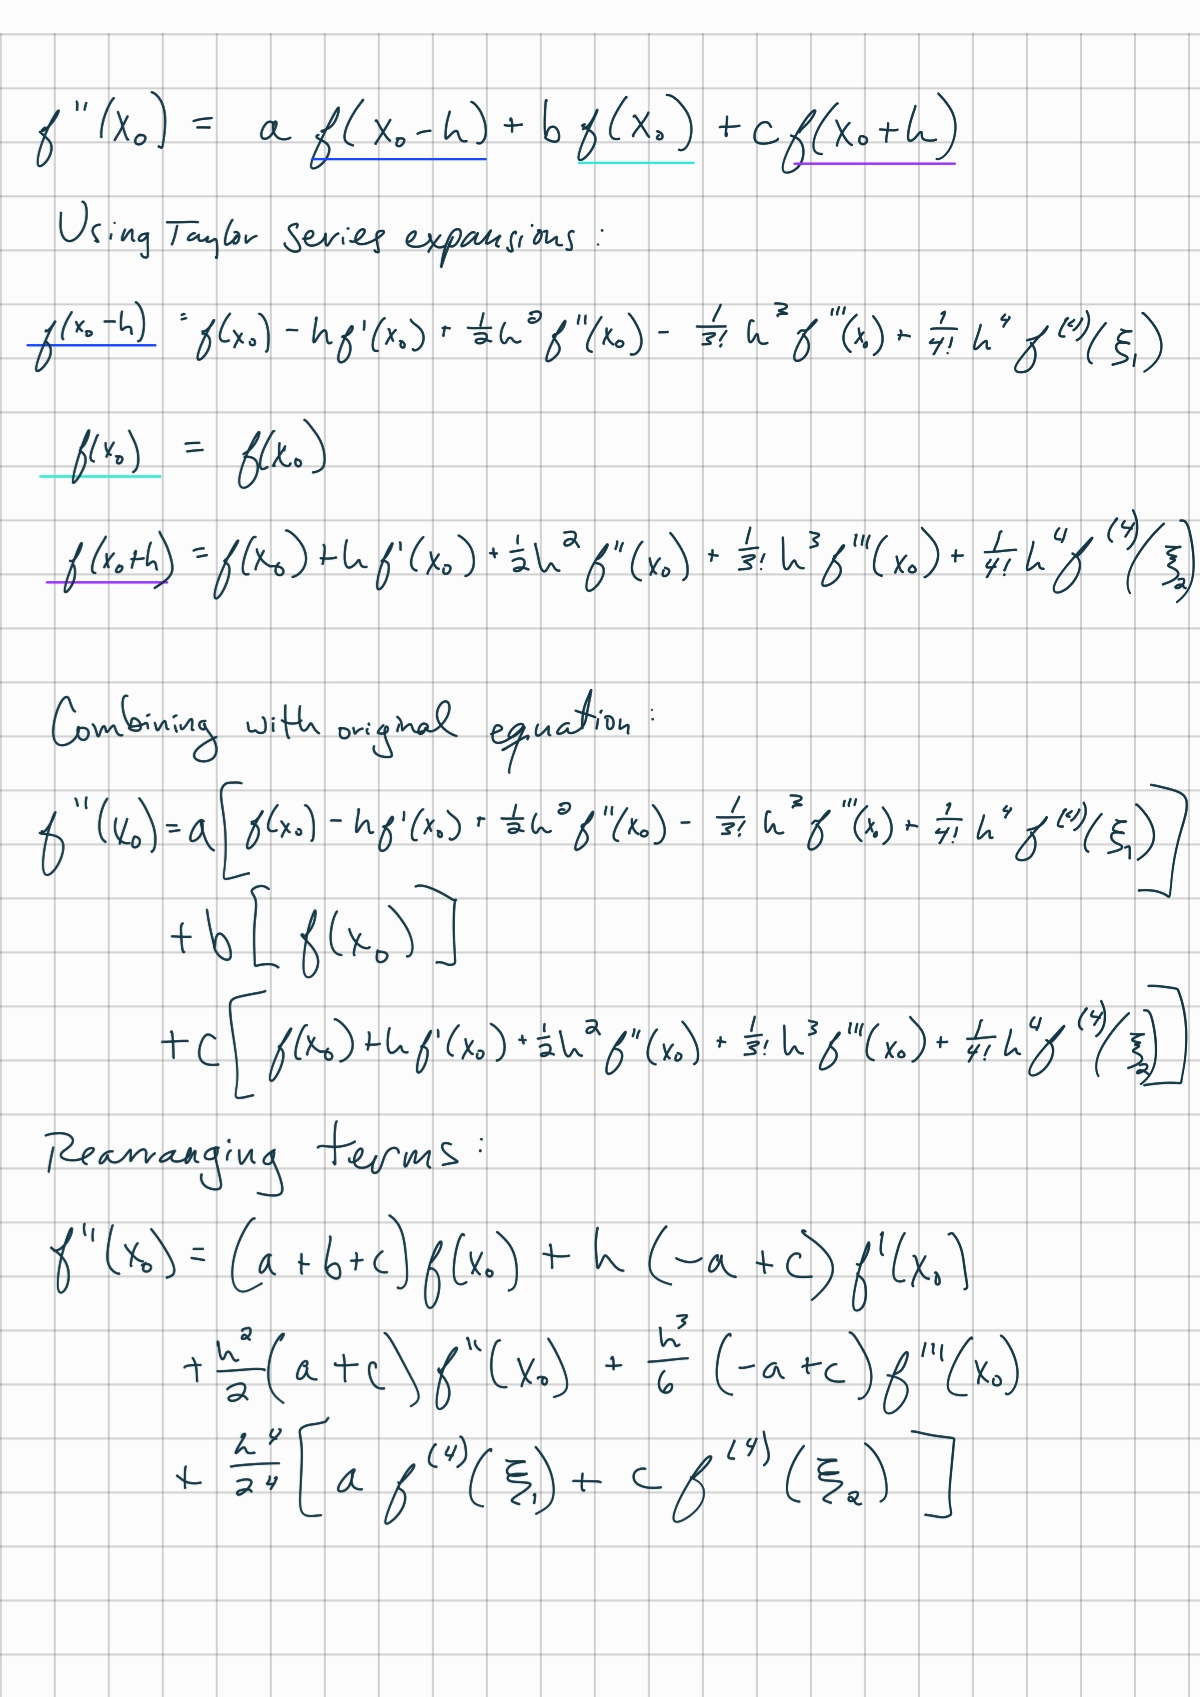 f''(x₀) = a f(x₀-h) + b f(x₀) + c f(x₀+h)
Using Taylor series expansions:
f(x₀-h) = f(x₀) - hf'(x₀) + 1/2 h² f''(x₀) - 1/3! h³ f'''(x₀) + 1/4! h⁴ f⁽⁴⁾(ξ₁)
f(x₀) = f(x₀)
f(x₀+h) = f(x₀) + h f'(x₀) + 1/2 h² f''(x₀) + 1/3! h³ f'''(x₀) + 1/4! h⁴ f⁽⁴⁾(ξ₂)
Combining with original equation:
f''(x₀) = a[f(x₀) - hf'(x₀) + 1/2 h² f''(x₀) - 1/3! h³ f'''(x₀) + 1/4! h⁴ f⁽⁴⁾(ξ₁)]
+ b[f(x₀)]
+ c[f(x₀) + h f'(x₀) + 1/2 h² f''(x₀) + 1/3! h³ f'''(x₀) + 1/4! h⁴ f⁽⁴⁾(ξ₂)]
Rearranging terms:
f''(x₀) = (a+b+c) f(x₀) + h (-a+c) f'(x₀)
+ h²/2 (a+c) f''(x₀) + h³/6 (-a+c) f'''(x₀)
+ h⁴/24 [a f⁽⁴⁾(ξ₁) + c f⁽⁴⁾(ξ₂)]